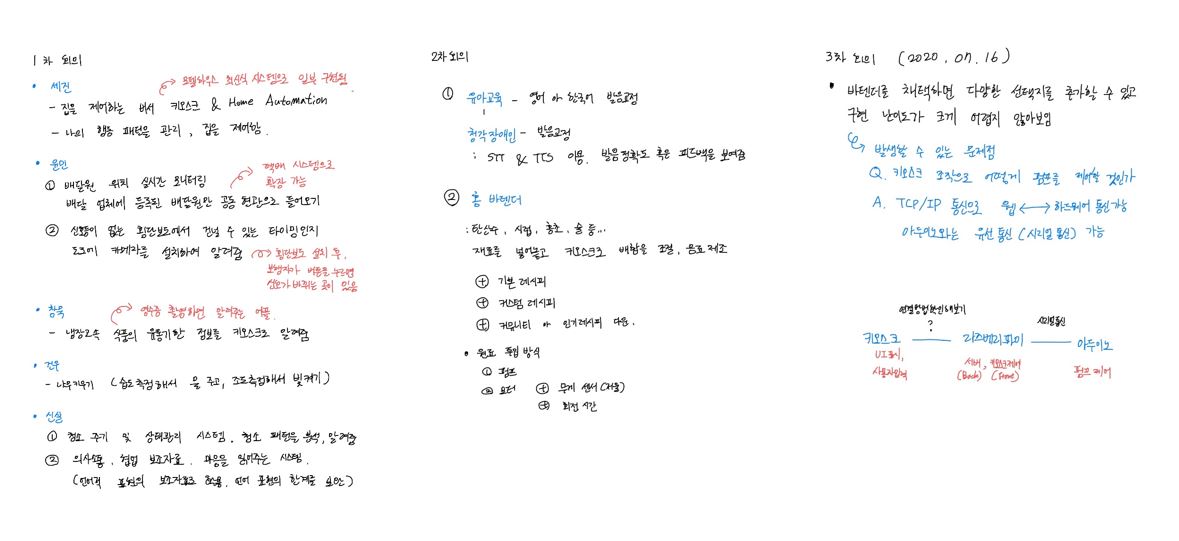 1차 회의
• 세진
→ 모델하우스 최신식 시스템으로 일부 구현됨.
- 집을 제어하는 비서 키오스크 & Home Automation
- 나의 행동 패턴을 관리, 집을 제어함.
• 윤민
① 배달원 위치 실시간 모니터링
→ 택배 시스템으로
확장 가능
배달 업체에 등록된 배달원만 공동 현관으로 들어오기
② 신호등이 없는 횡단보도에서 건널 수 있는 타이밍 인지
도로에 카메라를 설치하여 알려줌
→ 횡단보도 설치 후,
보행자가 버튼을 누르면
신호가 바뀌는 곳이 있음
• 창욱
→ 영수증 촬영하면 알려주는 어플.
- 냉장고속 식품의 유통기한 정보를 키오스크로 알려줌
• 건우
- 나무키우기 (습도측정해서 물 주고, 조도측정해서 빛 켜기)
• 신실
① 청소 주기 및 상태관리 시스템. 청소 패턴을 분석, 알려줌
② 의사소통, 협업 보조자료. 마음을 읽어주는 시스템.
(언어적 표현의 보조자료로 활용. 언어 표현의 한계를 보완)
2차 회의
① 유아교육 - 영어 or 한국어 발음교정
청각장애인 - 발음교정
: STT & TTS 이용. 발음정확도 혹은 피드백을 보여줌
② 홈 바텐더
: 탄산수, 시럽, 홍초, 술 등...
재료를 넣어놓고 키오스크로 배합을 조절, 음료 제조
⊕ 기본 레시피
⊕ 커스텀 레시피
⊕ 커뮤니티 or 인기레시피 다운.
• 원료 투입 방식
① 펌프
② 모터 ⊕ 무게 센서 (저울)
⊕ 회전 시간
3차 회의 (2020. 07. 16)
• 바텐더를 채택하면 다양한 선택지를 추가할 수 있고
구현 난이도가 크게 어렵지 않아보임
→ 발생할 수 있는 문제점
Q. 키오스크 조작으로 어떻게 펌프를 제어할 것인가
A. TCP/IP 통신으로 웹 ↔ 하드웨어 통신가능
아두이노와는 유선통신 (시리얼 통신) 가능
?
시리얼통신
키오스크 — 라즈베리파이 — 아두이노
UI표시,
사용자입력
서버, 키오스크제어
(Back) (Front)
펌프 제어